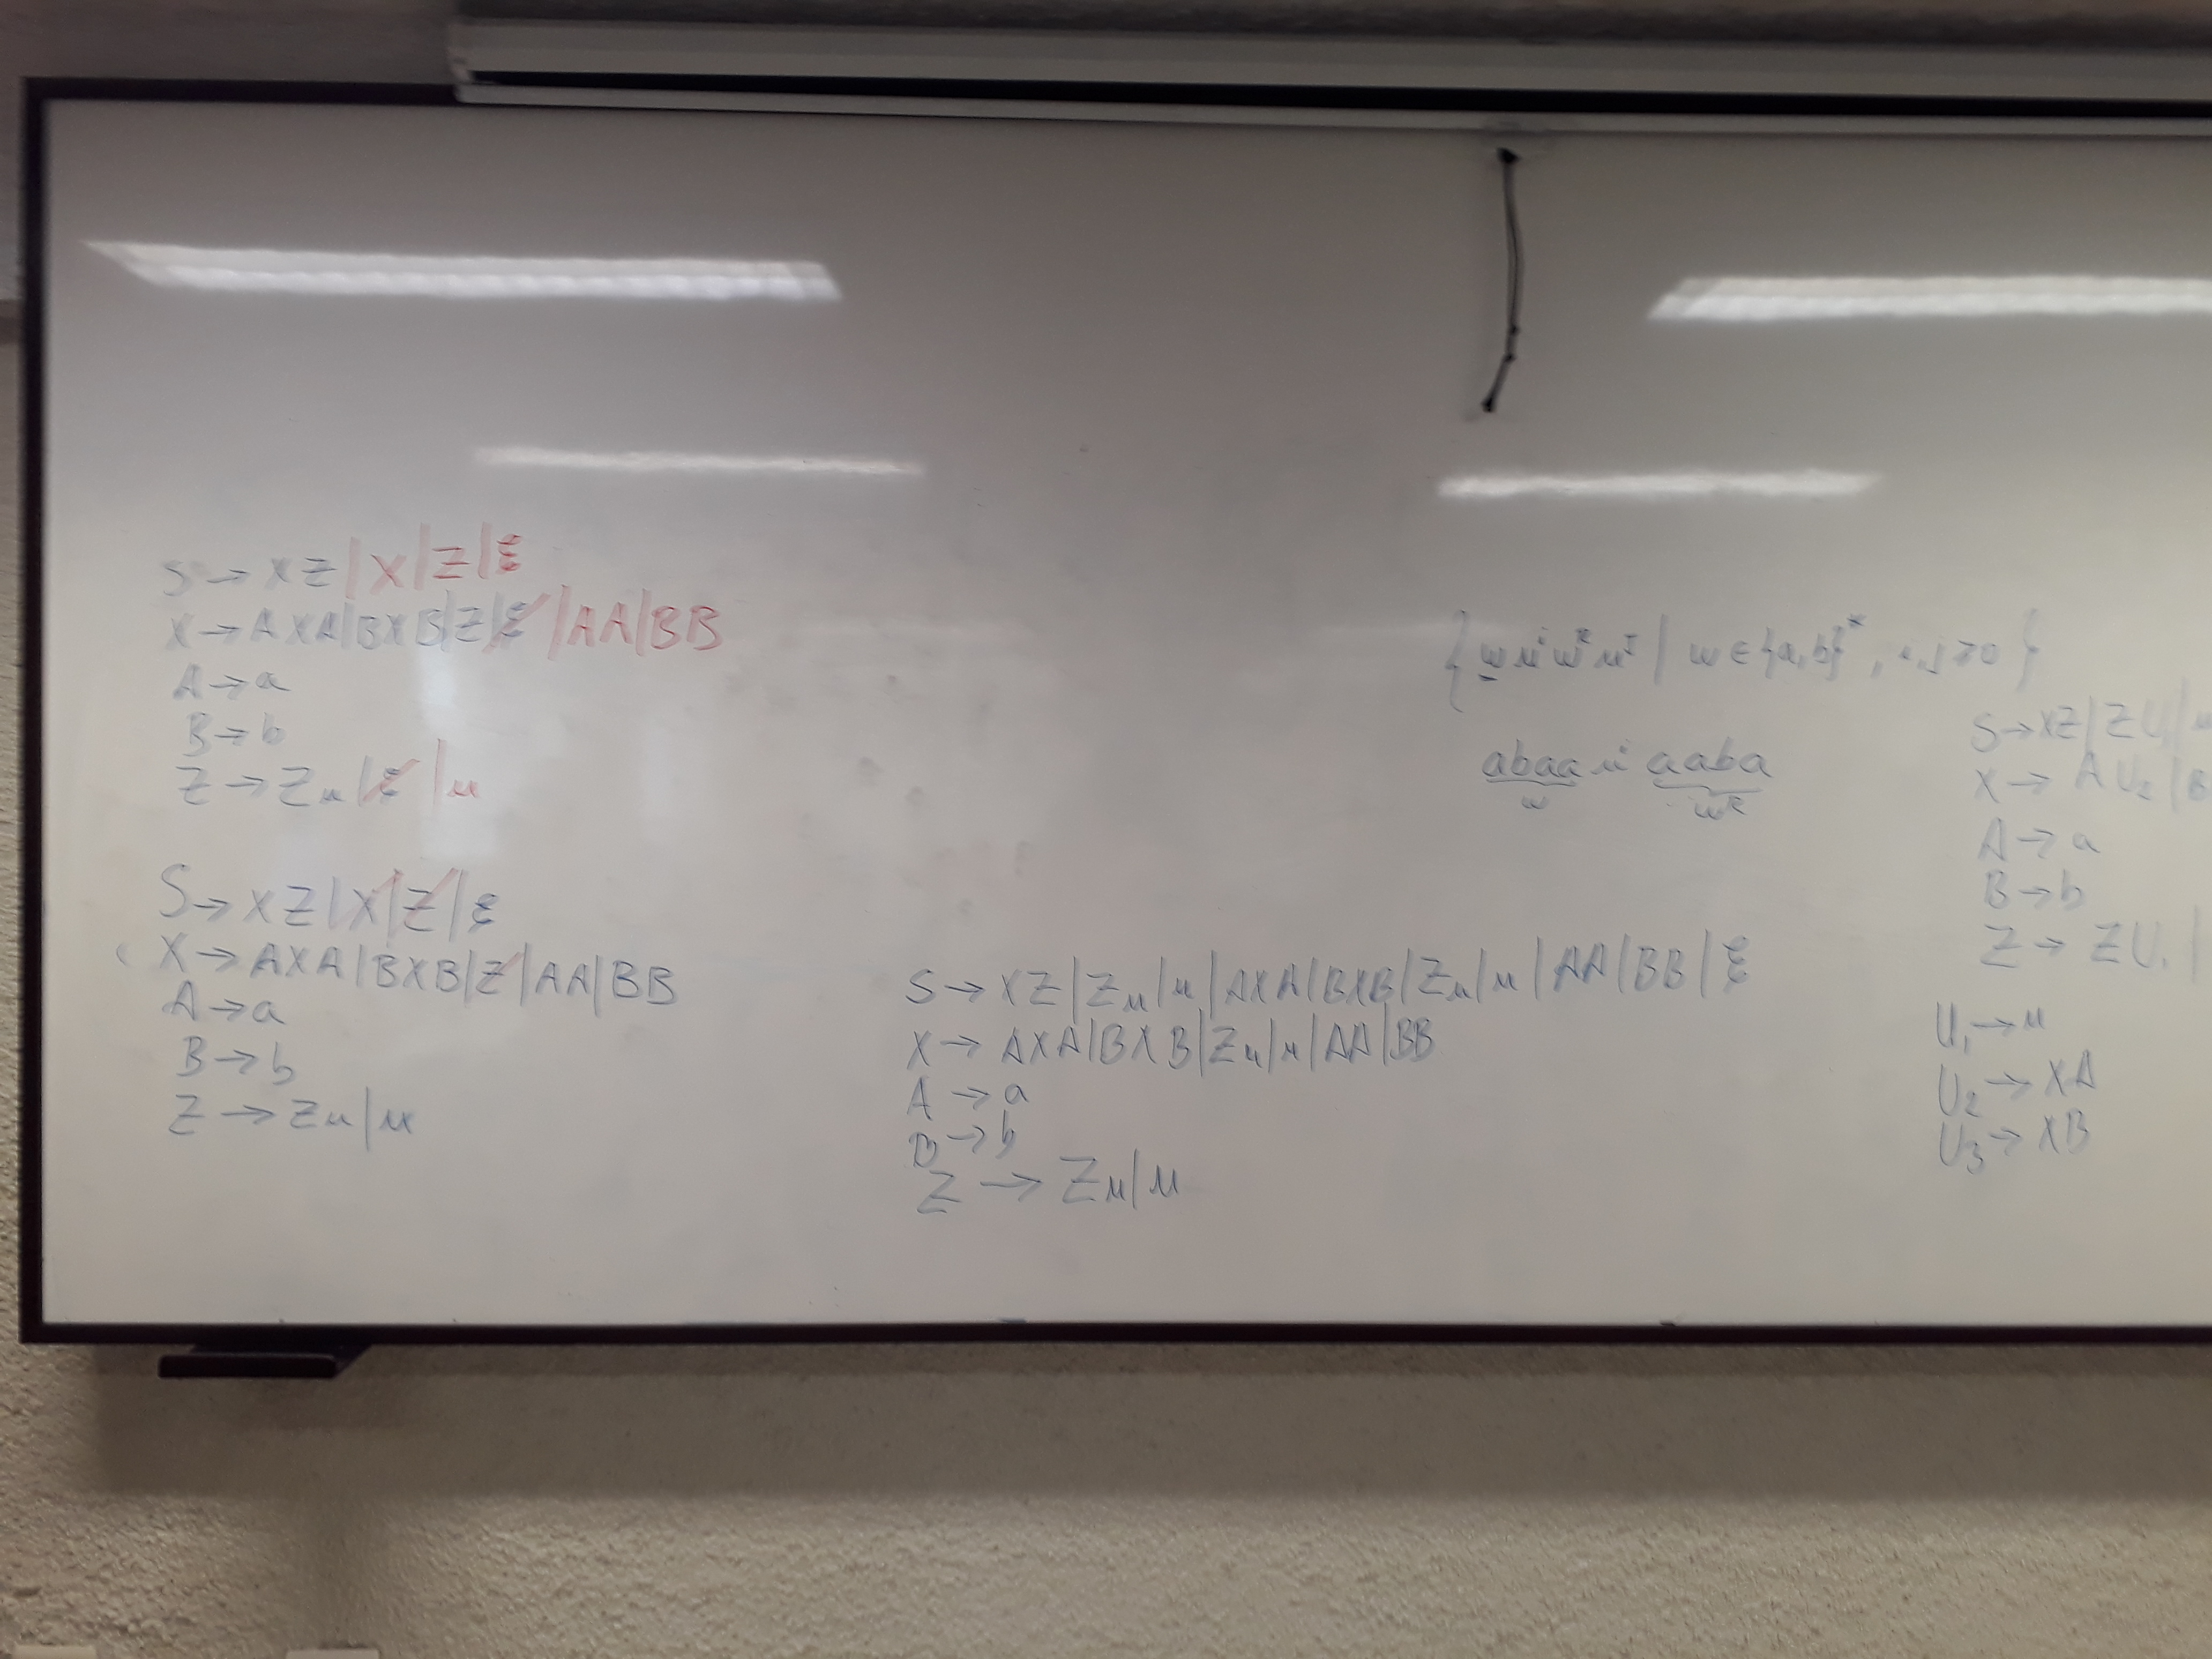 S → XZ|X|Z|ε
X → AXA|BXB|Z|ε|AA|BB
A → a
B → b
Z → Zu|ε|u
S → XZ|X|Z|ε
X → AXA|BXB|Z|AA|BB
A → a
B → b
Z → Zu|u
S → XZ|Zu|u|AXA|BXB|Zu|u|AA|BB|ε
X → AXA|BXB|Zu|u|AA|BB
A → a
B → b
Z → Zu|u
{wuⁱwᴿuʲ | w ∈ {a,b}*, i,j ≥ 0}
abaa uⁱ aaba
w wᴿ
S → XZ|ZU₁|u
X → AU₂|B
A → a
B → b
Z → ZU₁|
U₁ → u
U₂ → XA
U₃ → XB